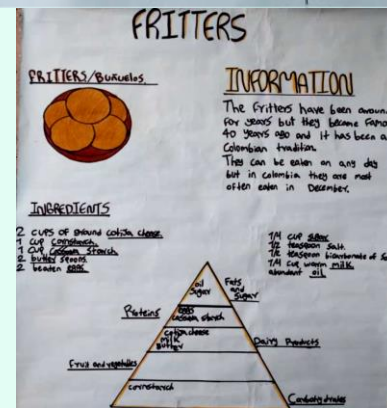 FRITTERS
FRITTERS/Buñuelos.
INFORMATION
The Fritters have been aroun
For years but they became Famo
40 years ago and it has been a
Colombian tradition.
They can be eaten on any day
but in colombia they are most
often eaten in December.
INGREDIENTS
2 cups of ground cotija cheese
1 cup cornstarch
1 cup cassava starch
2 butter spoons
2 beaten eggs
1/4 cup sugar
1/2 teaspoon salt.
1/2 teaspoon bicarbonate of so
1/4 cup warm milk
abundant oil
oil
sugar
Fats
and
sugar
Proteins
eggs
cassava starch
cotija cheese
milk
butter
Dairy Products
Fruit and vegetables
cornstarch
Carbohydrates